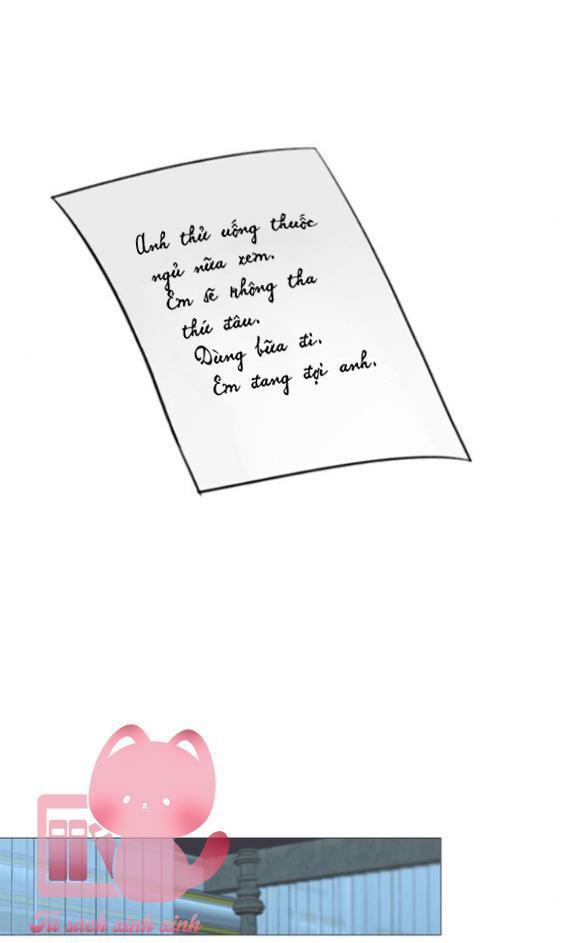 Anh thử uống thuốc
ngủ nữa xem.
Em sẽ không tha
thứ đâu.
Dùng bữa đi.
Em đang đợi anh.
Tủ sách xinh xinh